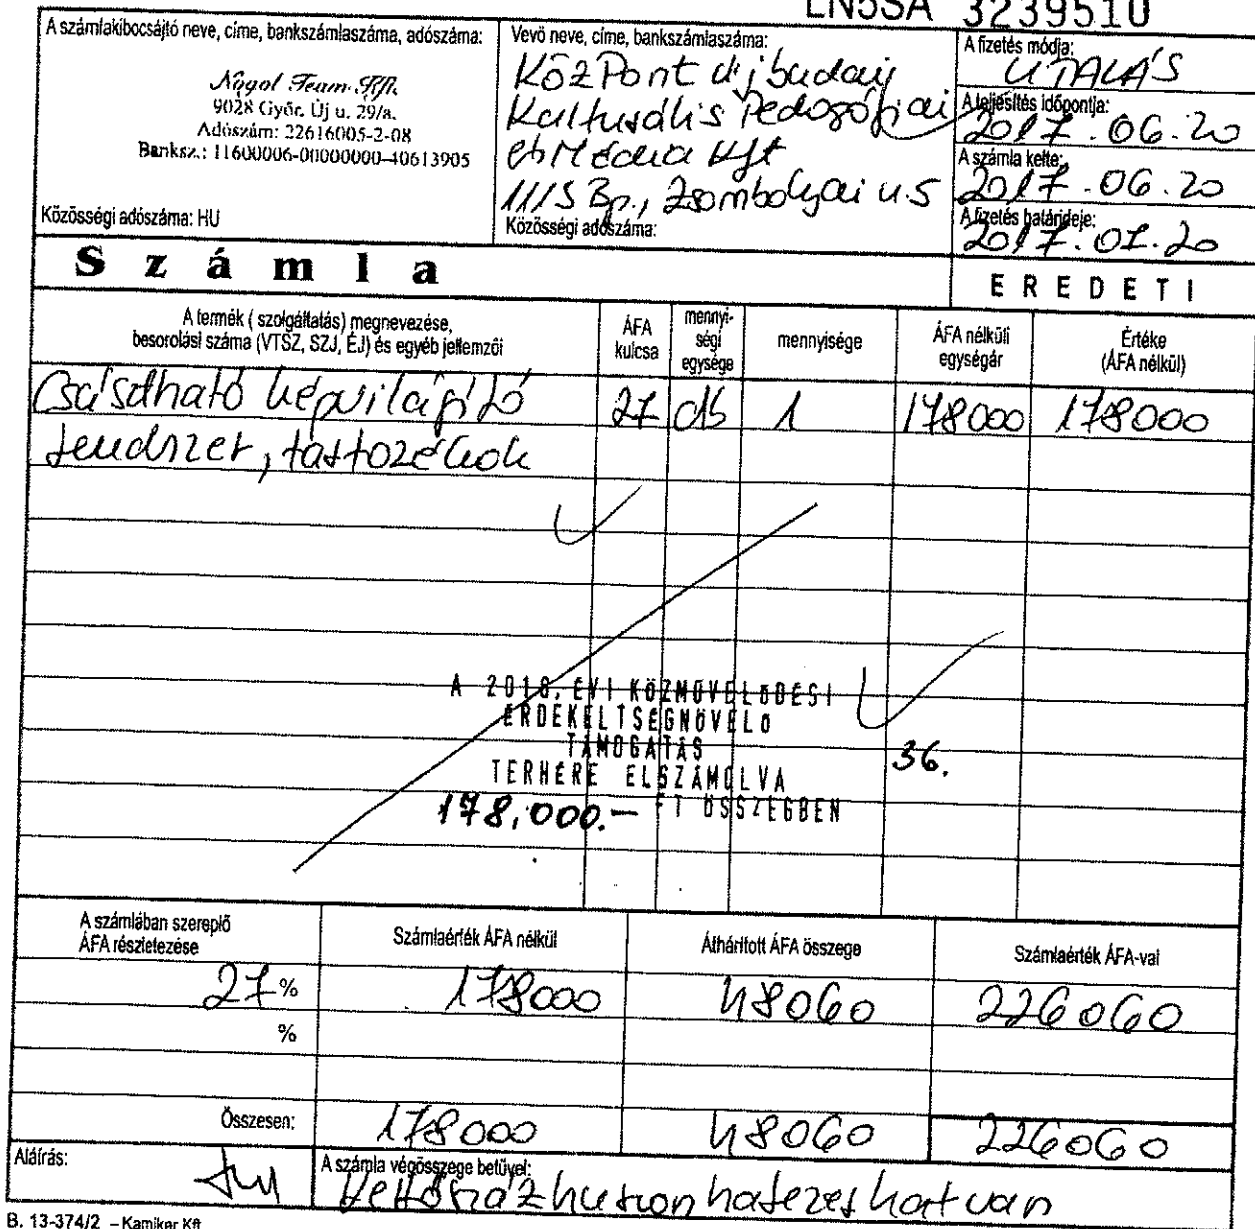 LN5SA 3239510
A számlakibocsájtó neve, címe, bankszámlaszáma, adószáma:
Nógol Team Kft.
9028 Győr, Új u. 29/a.
Adószám: 22616005-2-08
Banksz.: 11600006-00000000-40613905
Közösségi adószáma: HU
Vevő neve, címe, bankszámlaszáma:
KözPont Újbudai
Kulturális Pedagógiai
és Média Kft
1115 Bp., Zsombolyai u. 5
Közösségi adószáma:
A fizetés módja:
UTALÁS
A teljesítés időpontja:
2017.06.20
A számla kelte:
2017.06.20
A fizetés határideje:
2017.07.20
Számla
EREDETI
A termék ( szolgáltatás) megnevezése,
besorolási száma (VTSZ, SZJ, ÉJ) és egyéb jellemzői
ÁFA
kulcsa
mennyi-
ségi
egysége
mennyisége
ÁFA nélküli
egységár
Értéke
(ÁFA nélkül)
képvilágító 27 db 1 178000 178000
rendszer, tartozékok
A 2016. ÉVI KÖZMŰVELŐDÉSI
ÉRDEKELTSÉGNÖVELŐ
TÁMOGATÁS
TERHÉRE ELSZÁMOLVA
36.
178.000.- FT ÖSSZEGBEN
A számlában szereplő
ÁFA részletezése
Számlaérték ÁFA nélkül
Áthárított ÁFA összege
Számlaérték ÁFA-val
27 % 178000 48060 226060
%
Összesen: 178000 48060 226060
Aláírás:
A számla végösszege betűvel:
Kettőszázhuszonhatezerhatvan
B. 13-374/2 – Kamiker Kft